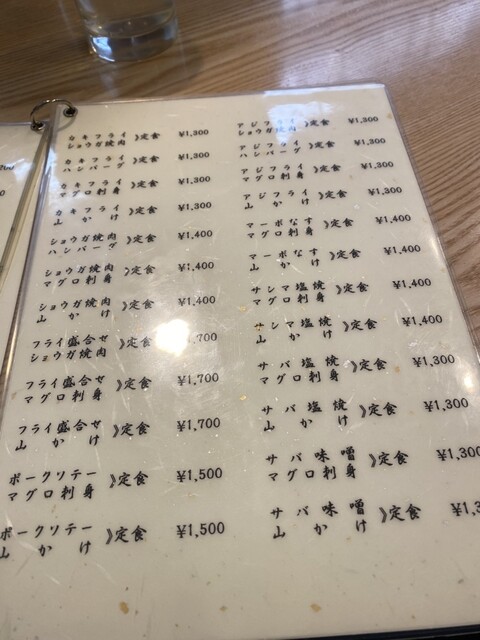 カキフライ
ショウガ焼肉
》定食 ¥1,300
カキフライ
ハンバーグ
》定食 ¥1,300
カキフライ
マグロ刺身
》定食 ¥1,300
カキフライ
山かけ
》定食 ¥1,300
ショウガ焼肉
ハンバーグ
》定食 ¥1,400
ショウガ焼肉
マグロ刺身
》定食 ¥1,400
ショウガ焼肉
山かけ
》定食 ¥1,400
フライ盛合せ
ショウガ焼肉
》定食 ,700
フライ盛合せ
マグロ刺身
》定食 ¥1,700
フライ盛合せ
山かけ
》定食 ¥1,700
ポークソテー
マグロ刺身
》定食 ¥1,500
ポークソテー
山かけ
》定食 ¥1,500
アジフライ
ショウガ焼肉
》定食 ¥1,300
アジフライ
ハンバーグ
》定食 ¥1,300
アジフライ
マグロ刺身
》定食 ¥1,300
アジフライ
山かけ
》定食 ¥1,300
マーボなす
マグロ刺身
》定食 ¥1,400
マーボなす
山かけ
》定食 ¥1,400
サンマ塩焼
マグロ刺身
》定食 ¥1,400
サンマ塩焼
山かけ
》定食 ¥1,400
サバ塩焼
マグロ刺身
》定食 ¥1,300
サバ塩焼
山かけ
》定食 ¥1,300
サバ味噌
マグロ刺身
》定食 ¥1,300
サバ味噌
山かけ
》定食 ¥1,3